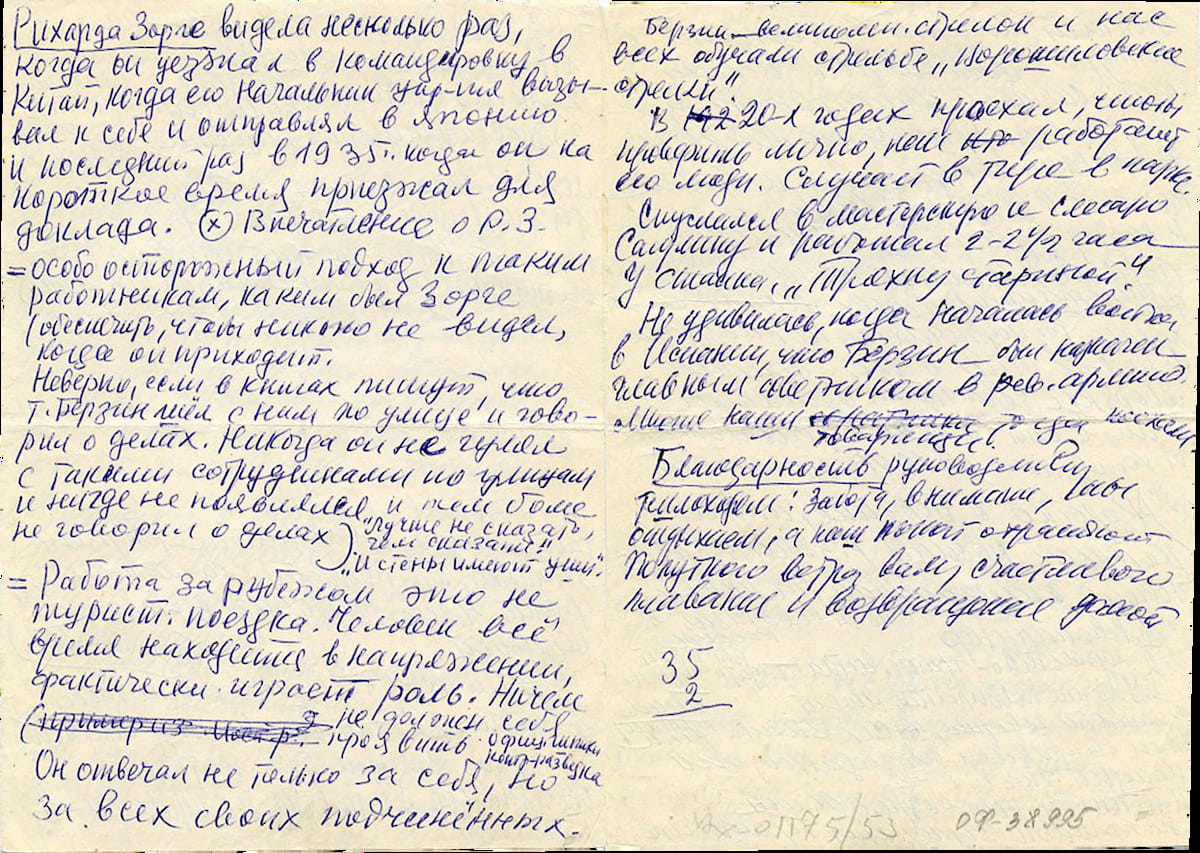 Рихарда Зорге видела несколько раз,
когда он уезжал в командировку в
Китай, когда его начальник упр-ния вызы-
вал к себе и отправлял в Японию.
и последний раз в 1935 г. когда он на
короткое время приезжал для
доклада. (х) Впечатление о Р.З.
= особо осторожный подход к таким
работникам, каким был Зорге
(обеспечить, чтобы никто не видел,
когда он приходит.
Неверно, если в книгах пишут, что
т. Берзин шёл с ним по улице и гово-
рил о делах. Никогда он не гулял
с такими сотрудниками по улицам
и нигде не появлялся и тем более
не говорил о делах) "лучше не сказать,
чем сказать"
"И стены имеют уши".
= Работа за рубежом это не
турист. поездка. Человек всё
время находится в напряжении,
фактически играет роль. Ничем
не должен себя
проявить.
контрразведка
Он отвечал не только за себя, но
за всех своих подчинённых.
Берзин стрелок и нас
всех обучали стрельбе "Ворошиловские
стрелки".
В 20-х годах приехал, чтобы
проверить лично, как работают
его люди. Случай в тире в парке.
Спускался в мастерскую к слесарю
Салнину и работал 2-2 1/2 часа
у станка, "Тряхну стариной".
Не удивилась, когда началась война
в Испании, что Берзин был назначен
главным советником в рев. армию.
Многие наши товарищи туда поехали
Благодарность руководителю
теплохода! Забота, внимание, мы
отдыхаем, а наш покой охраняют
Попутного ветра вам, счастливого
плавания и возвращения домой
35
2
01175/53
ОФ-38995